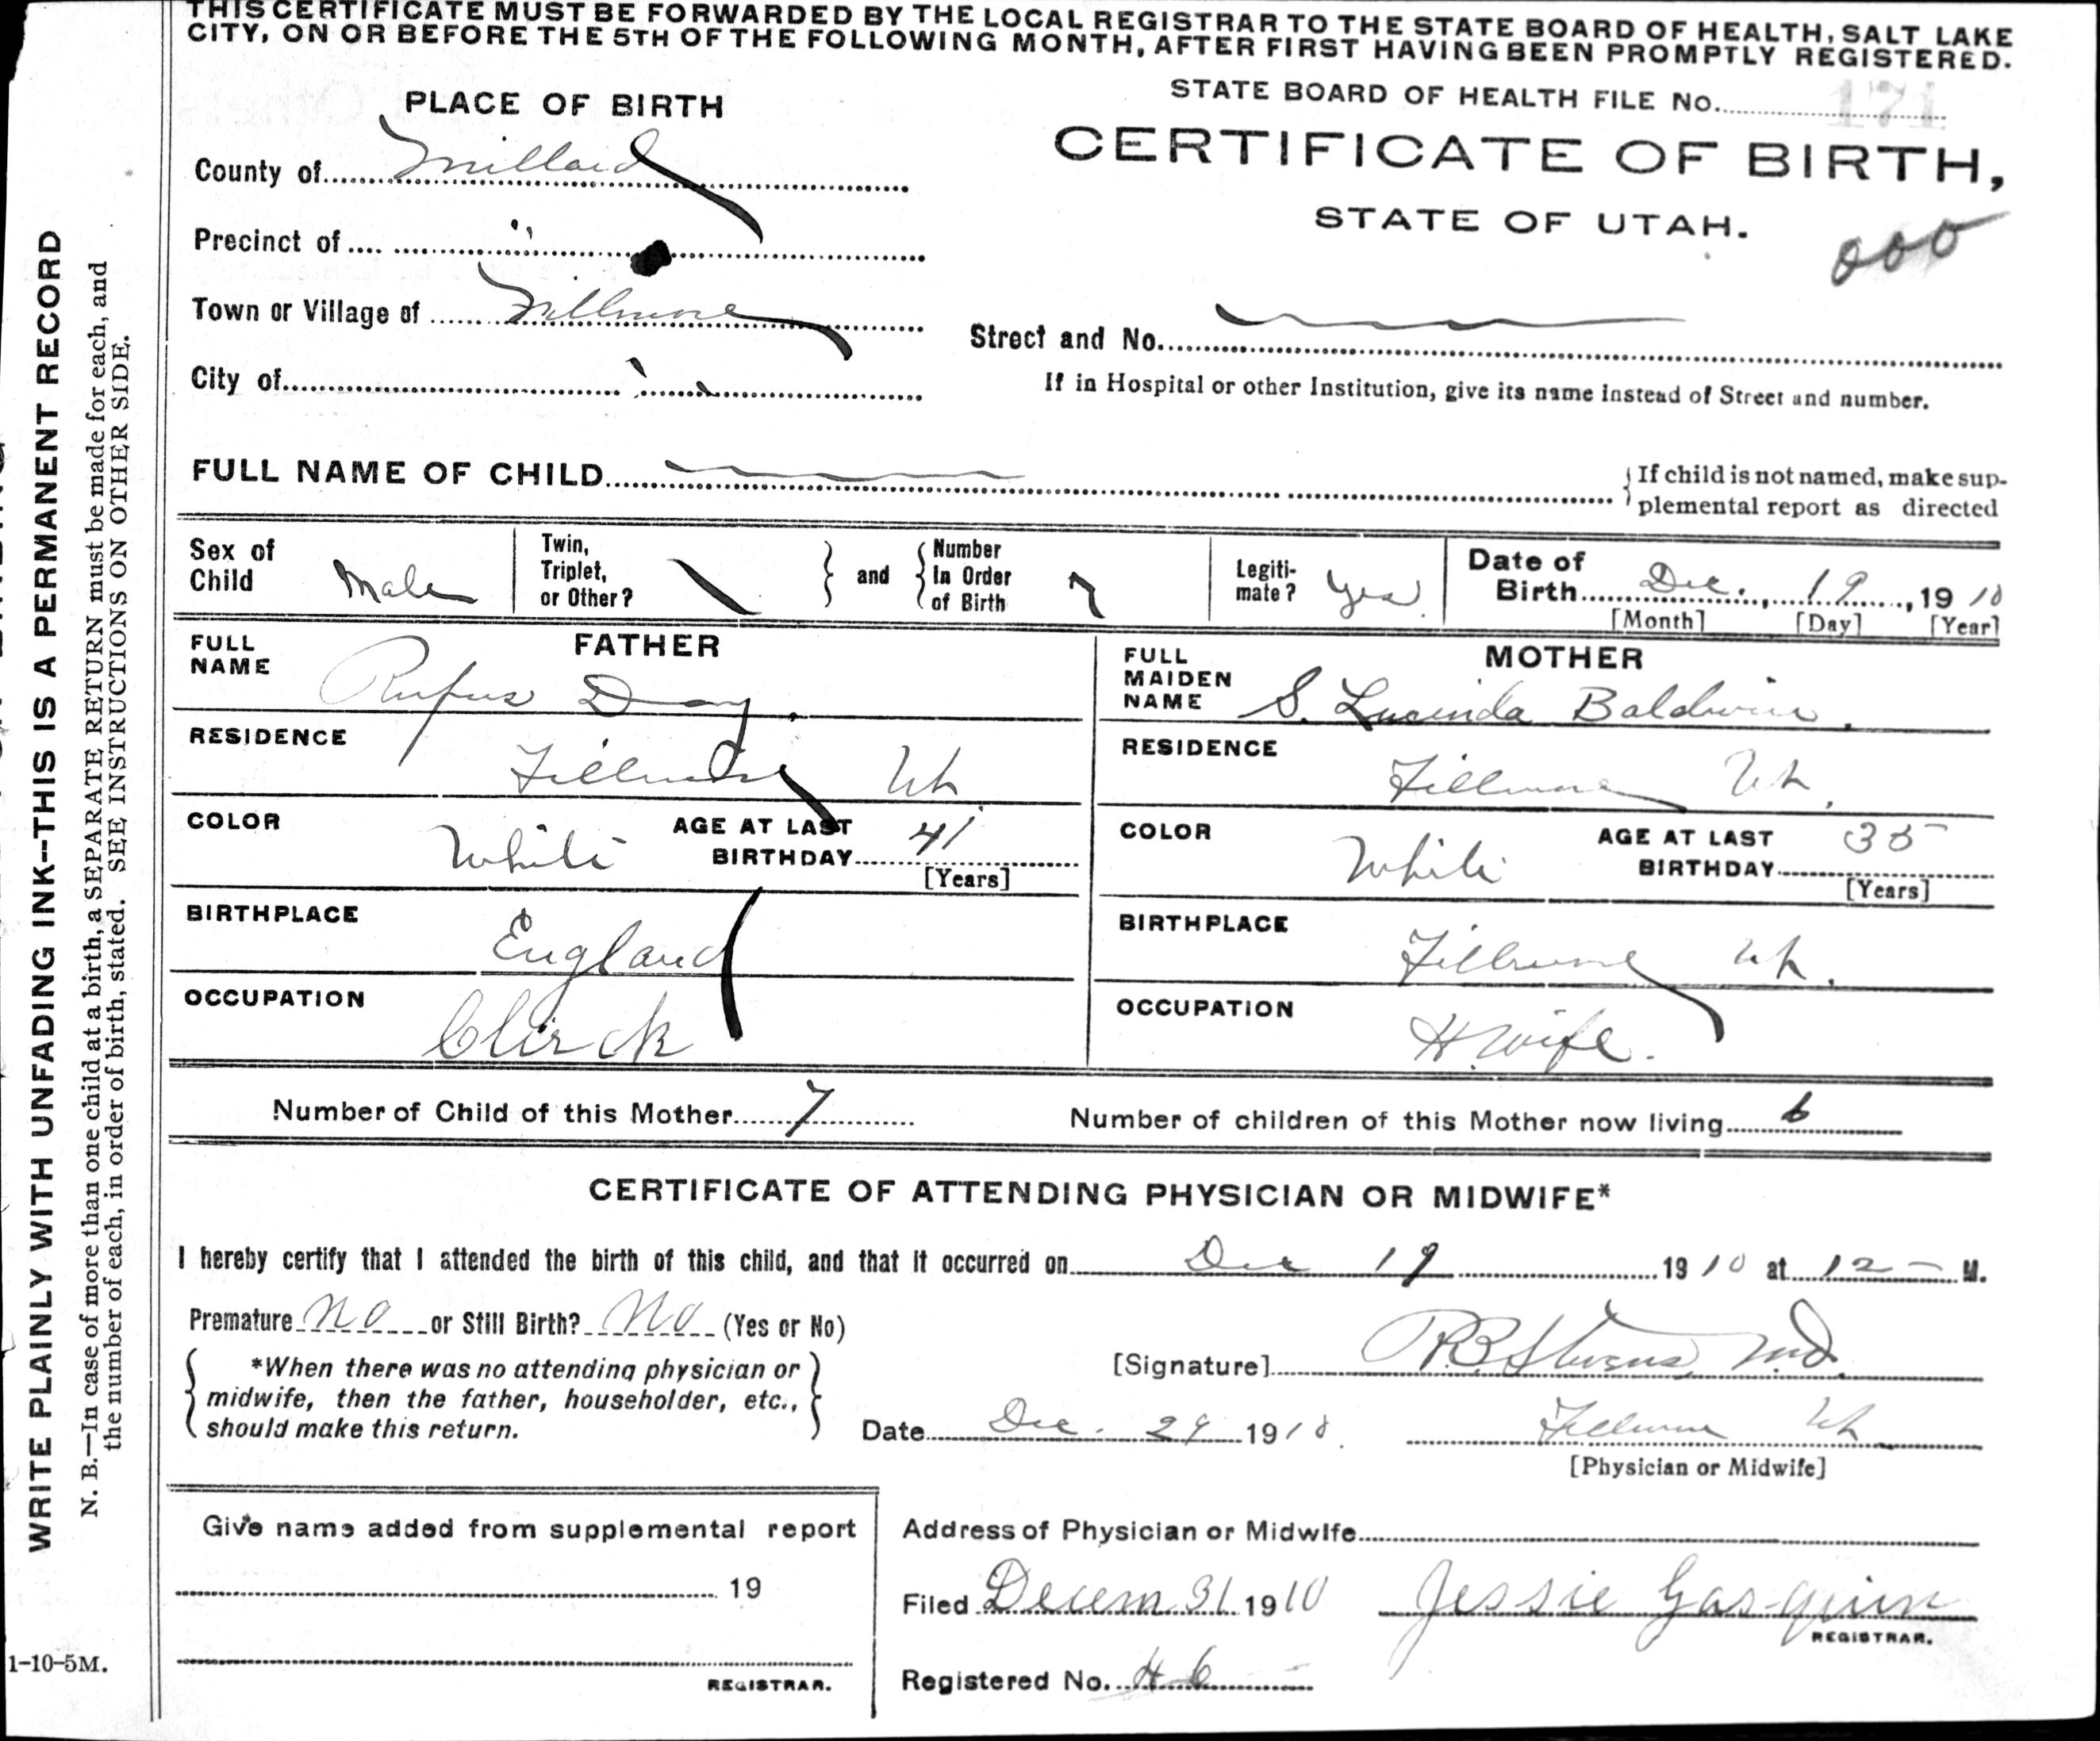 THIS CERTIFICATE MUST BE FORWARDED BY THE LOCAL REGISTRAR TO THE STATE BOARD OF HEALTH, SALT LAKE
CITY, ON OR BEFORE THE 5TH OF THE FOLLOWING MONTH, AFTER FIRST HAVING BEEN PROMPTLY REGISTERED.
STATE BOARD OF HEALTH FILE No. 171
PLACE OF BIRTH
CERTIFICATE OF BIRTH,
STATE OF UTAH.
000
County of Millard
Precinct of "
Town or Village of Fillmore
Street and No.
City of
If in Hospital or other Institution, give its name instead of Street and number.
FULL NAME OF CHILD
If child is not named, make sup-
plemental report as directed
Sex of Child Male
Twin, Triplet, or Other?
and
Number In Order of Birth 7
Legiti-mate? Yes
Date of Birth Dec. 19, 1910
[Month] [Day] [Year]
FATHER
FULL NAME Rufus Day.
RESIDENCE Fillmore Ut.
COLOR White AGE AT LAST BIRTHDAY 41
[Years]
BIRTHPLACE England
OCCUPATION Clirck
MOTHER
FULL MAIDEN NAME S. Lucinda Baldwin.
RESIDENCE Fillmore Ut.
COLOR White AGE AT LAST BIRTHDAY 35
[Years]
BIRTHPLACE Fillmore Ut.
OCCUPATION H.wife.
Number of Child of this Mother 7 Number of children of this Mother now living 6
CERTIFICATE OF ATTENDING PHYSICIAN OR MIDWIFE*
I hereby certify that I attended the birth of this child, and that it occurred on Dec 19 1910 at 12 — M.
Premature No or Still Birth? No (Yes or No)
[Signature] R.B. Stevens M.D.
*When there was no attending physician or
midwife, then the father, householder, etc.,
should make this return.
Date Dec. 29 1910. Fillmore Ut
[Physician or Midwife]
Give name added from supplemental report
19
REGISTRAR.
Address of Physician or Midwife
Filed Decem 31 1910 Jessie Gasquin
REGISTRAR.
Registered No. 46
WRITE PLAINLY WITH UNFADING INK--THIS IS A PERMANENT RECORD
N. B.—In case of more than one child at a birth, a SEPARATE RETURN must be made for each, and
the number of each, in order of birth, stated. SEE INSTRUCTIONS ON OTHER SIDE.
1-10-5M.